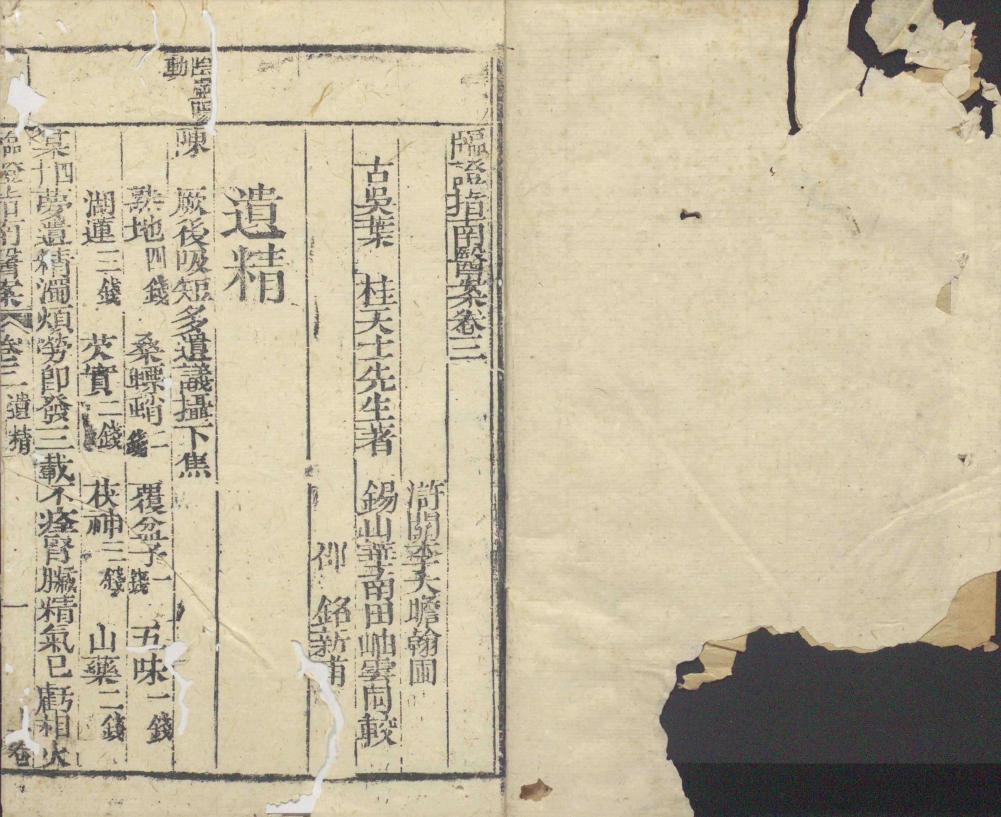 臨證指南醫案卷三
滸關李大瞻翰圃
古吳葉 桂天士先生著 錫山華南田岫雲同較
邵 銘新甫
遺精
陰虛陽動
陳 厥後吸短多遺議攝下焦
熟地四錢 桑螵蛸二錢 覆盆子一錢 五味一錢
湖蓮三錢 芡實二錢 茯神三錢 山藥二錢
某 四 夢遺精濁煩勞卽發三載不痊腎臟精氣已虧相火
臨證指南醫案 卷三 遺精 一